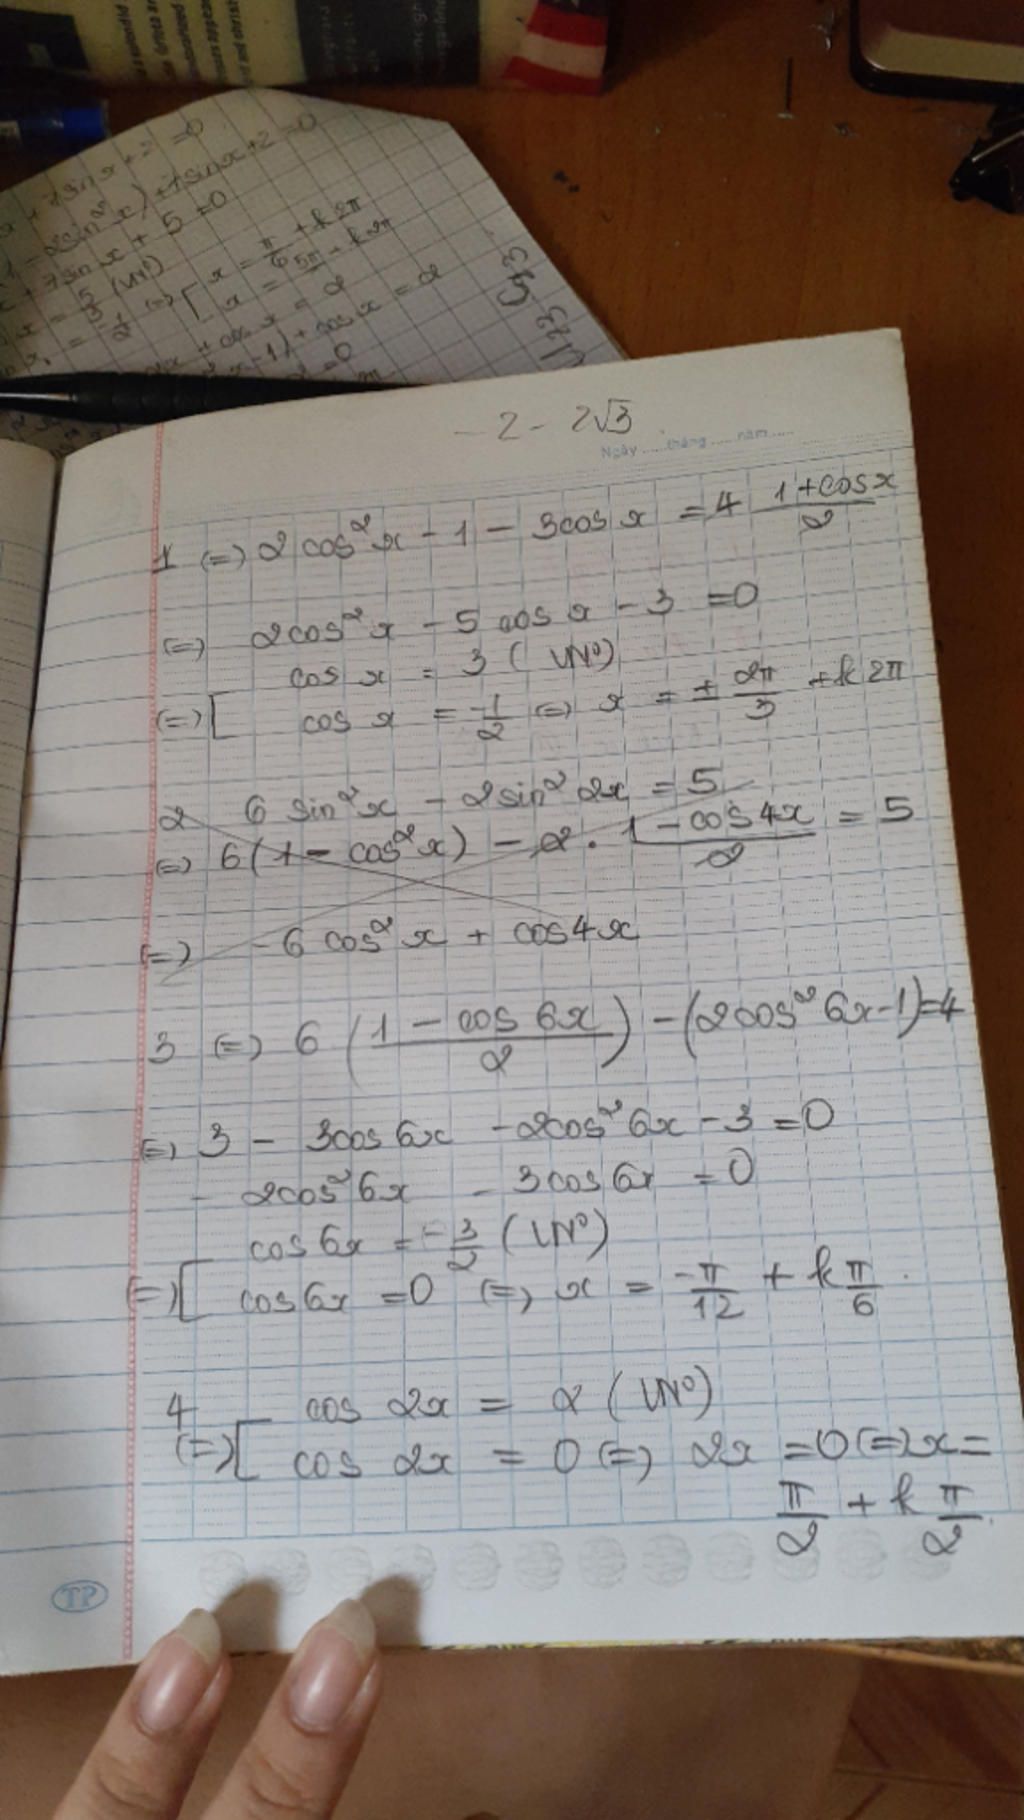 + 7sinx + 5 = 0
- 2 - 2√3
Ngày ......tháng ......năm ......
1 (=) 2cos²x - 1 - 3cosx = 4 (1+cosx)/2
(=) 2cos²x - 5cosx - 3 = 0
cosx = 3 (VN⁰)
(=) [ cosx = -1/2 (=) x = ± 2π/3 + k2π
2 6sin²x - 2sin²2x = 5
(=) 6(1 - cos²x) - 2 . (1 - cos4x)/2 = 5
(=) -6cos²x + cos4x
3 (=) 6 ((1 - cos6x)/2) - (2cos²6x-1)=4
(=) 3 - 3cos6x - 2cos²6x - 3 = 0
- 2cos²6x - 3cos6x = 0
cos6x = -3/2 (VN⁰)
(=) [ cos6x = 0 (=) x = -π/12 + k π/6
4 cos2x = 2 (VN⁰)
(=) [ cos2x = 0 (=) 2x = 0 (=) x =
π/2 + k π/2.
TP